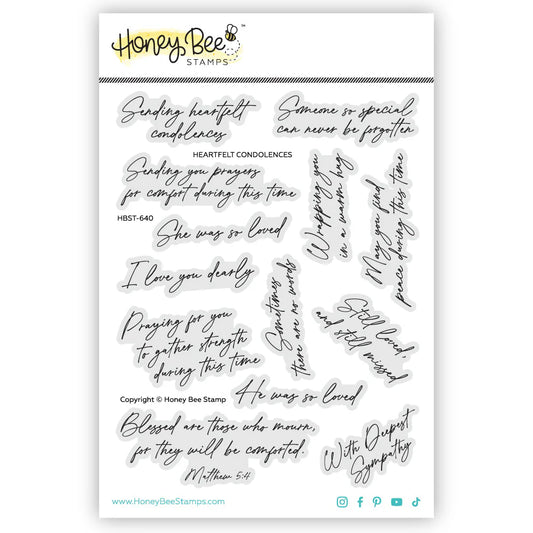 Honey Bee™
STAMPS
Sending heartfelt
condolences
Someone so special
can never be forgotten
HEARTFELT CONDOLENCES
Sending you prayers
for comfort during this time
HBST-640
Wrapping you
in a warm hug
May you find
peace during this time
She was so loved
I love you dearly
Sometimes
there are no words
Still loved,
and still missed
Praying for you
to gather strength
during this time
He was so loved
Copyright © Honey Bee Stamp
Blessed are those who mourn,
for they will be comforted.
Matthew 5:4
With Deepest
Sympathy
www.HoneyBeeStamps.com